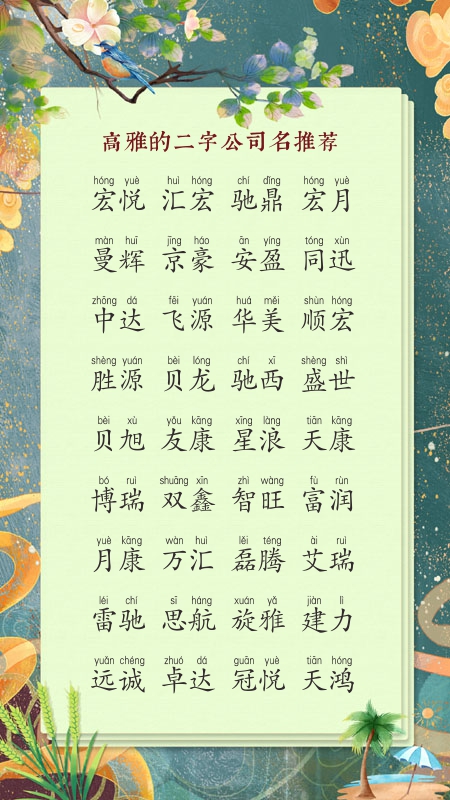 高雅的二字公司名推荐
hóng yuè huì hóng chí dǐng hóng yuè
宏悦 汇宏 驰鼎 宏月
màn huī jīng háo ān yíng tóng xùn
曼辉 京豪 安盈 同迅
zhōng dá fēi yuán huá měi shùn hóng
中达 飞源 华美 顺宏
shèng yuán bèi lóng chí xī shèng shì
胜源 贝龙 驰西 盛世
bèi xù yǒu kāng xīng làng tiān kāng
贝旭 友康 星浪 天康
bó ruì shuāng xīn zhì wàng fù rùn
博瑞 双鑫 智旺 富润
yuè kāng wàn huì lěi téng ài ruì
月康 万汇 磊腾 艾瑞
léi chí sī háng xuán yǎ jiàn lì
雷驰 思航 旋雅 建力
yuǎn chéng zhuó dá guān yuè tiān hóng
远诚 卓达 冠悦 天鸿